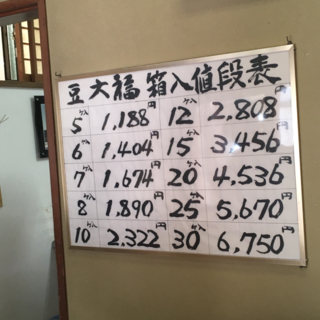 豆大福箱入値段表
5ヶ入 1,188円 12ヶ入 2,808円
6ヶ入 1,404円 15ヶ入 3,456円
7ヶ入 1,674円 20ヶ入 4,536円
8ヶ入 1,890円 25ヶ入 5,670円
10ヶ入 2,322円 30ヶ入 6,750円